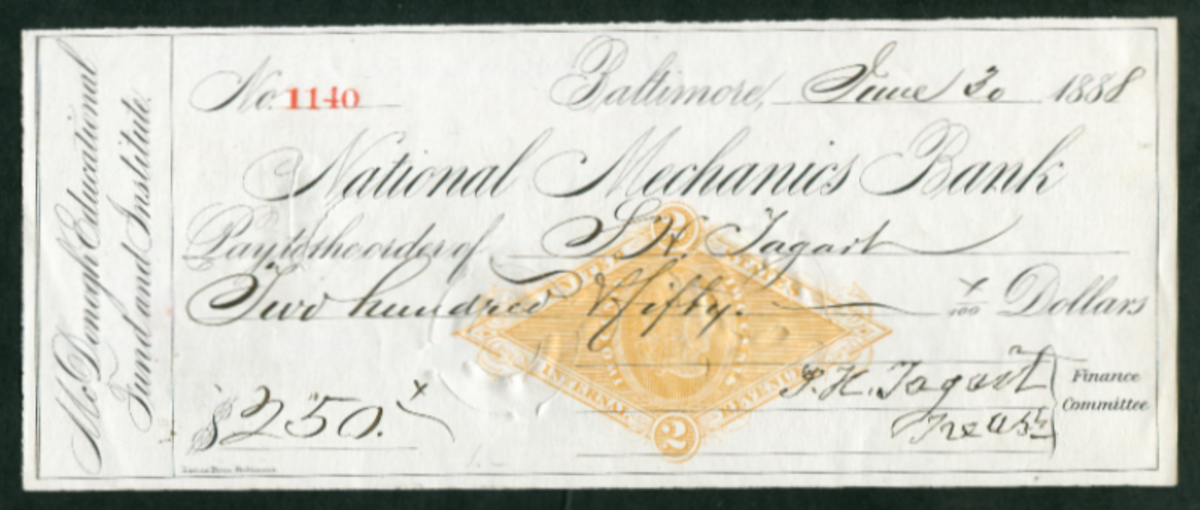 McDonogh Educational
Fund and Institute.
No. 1140
Baltimore, June 30 1888
National Mechanics Bank
Pay to the order of S H Tagart
Two hundred & fifty. x/100 Dollars
UNITED
INTERNAL REVENUE
2
2
S. H. Tagart
Treasr
Finance
Committee
$250. x